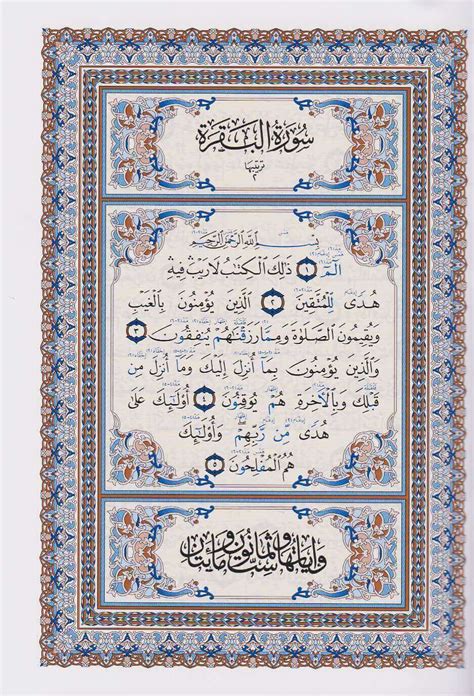 سُورَةُ البَقَرَةِ
ترتيبها
٢
بِسْمِ اللَّهِ الرَّحْمَٰنِ الرَّحِيمِ
الٓمٓ ١ ذَٰلِكَ الْكِتَٰبُ لَا رَيْبَ فِيهِ
هُدًى لِّلْمُتَّقِينَ ٢ الَّذِينَ يُؤْمِنُونَ بِالْغَيْبِ
وَيُقِيمُونَ الصَّلَوٰةَ وَمِمَّا رَزَقْنَٰهُمْ يُنفِقُونَ ٣
وَالَّذِينَ يُؤْمِنُونَ بِمَا أُنزِلَ إِلَيْكَ وَمَا أُنزِلَ مِن
قَبْلِكَ وَبِالْآخِرَةِ هُمْ يُوقِنُونَ ٤ أُولَٰئِكَ عَلَىٰ
هُدًى مِّن رَّبِّهِمْ وَأُولَٰئِكَ
هُمُ الْمُفْلِحُونَ ٥
وآياتها ست وثمانون ومائتان